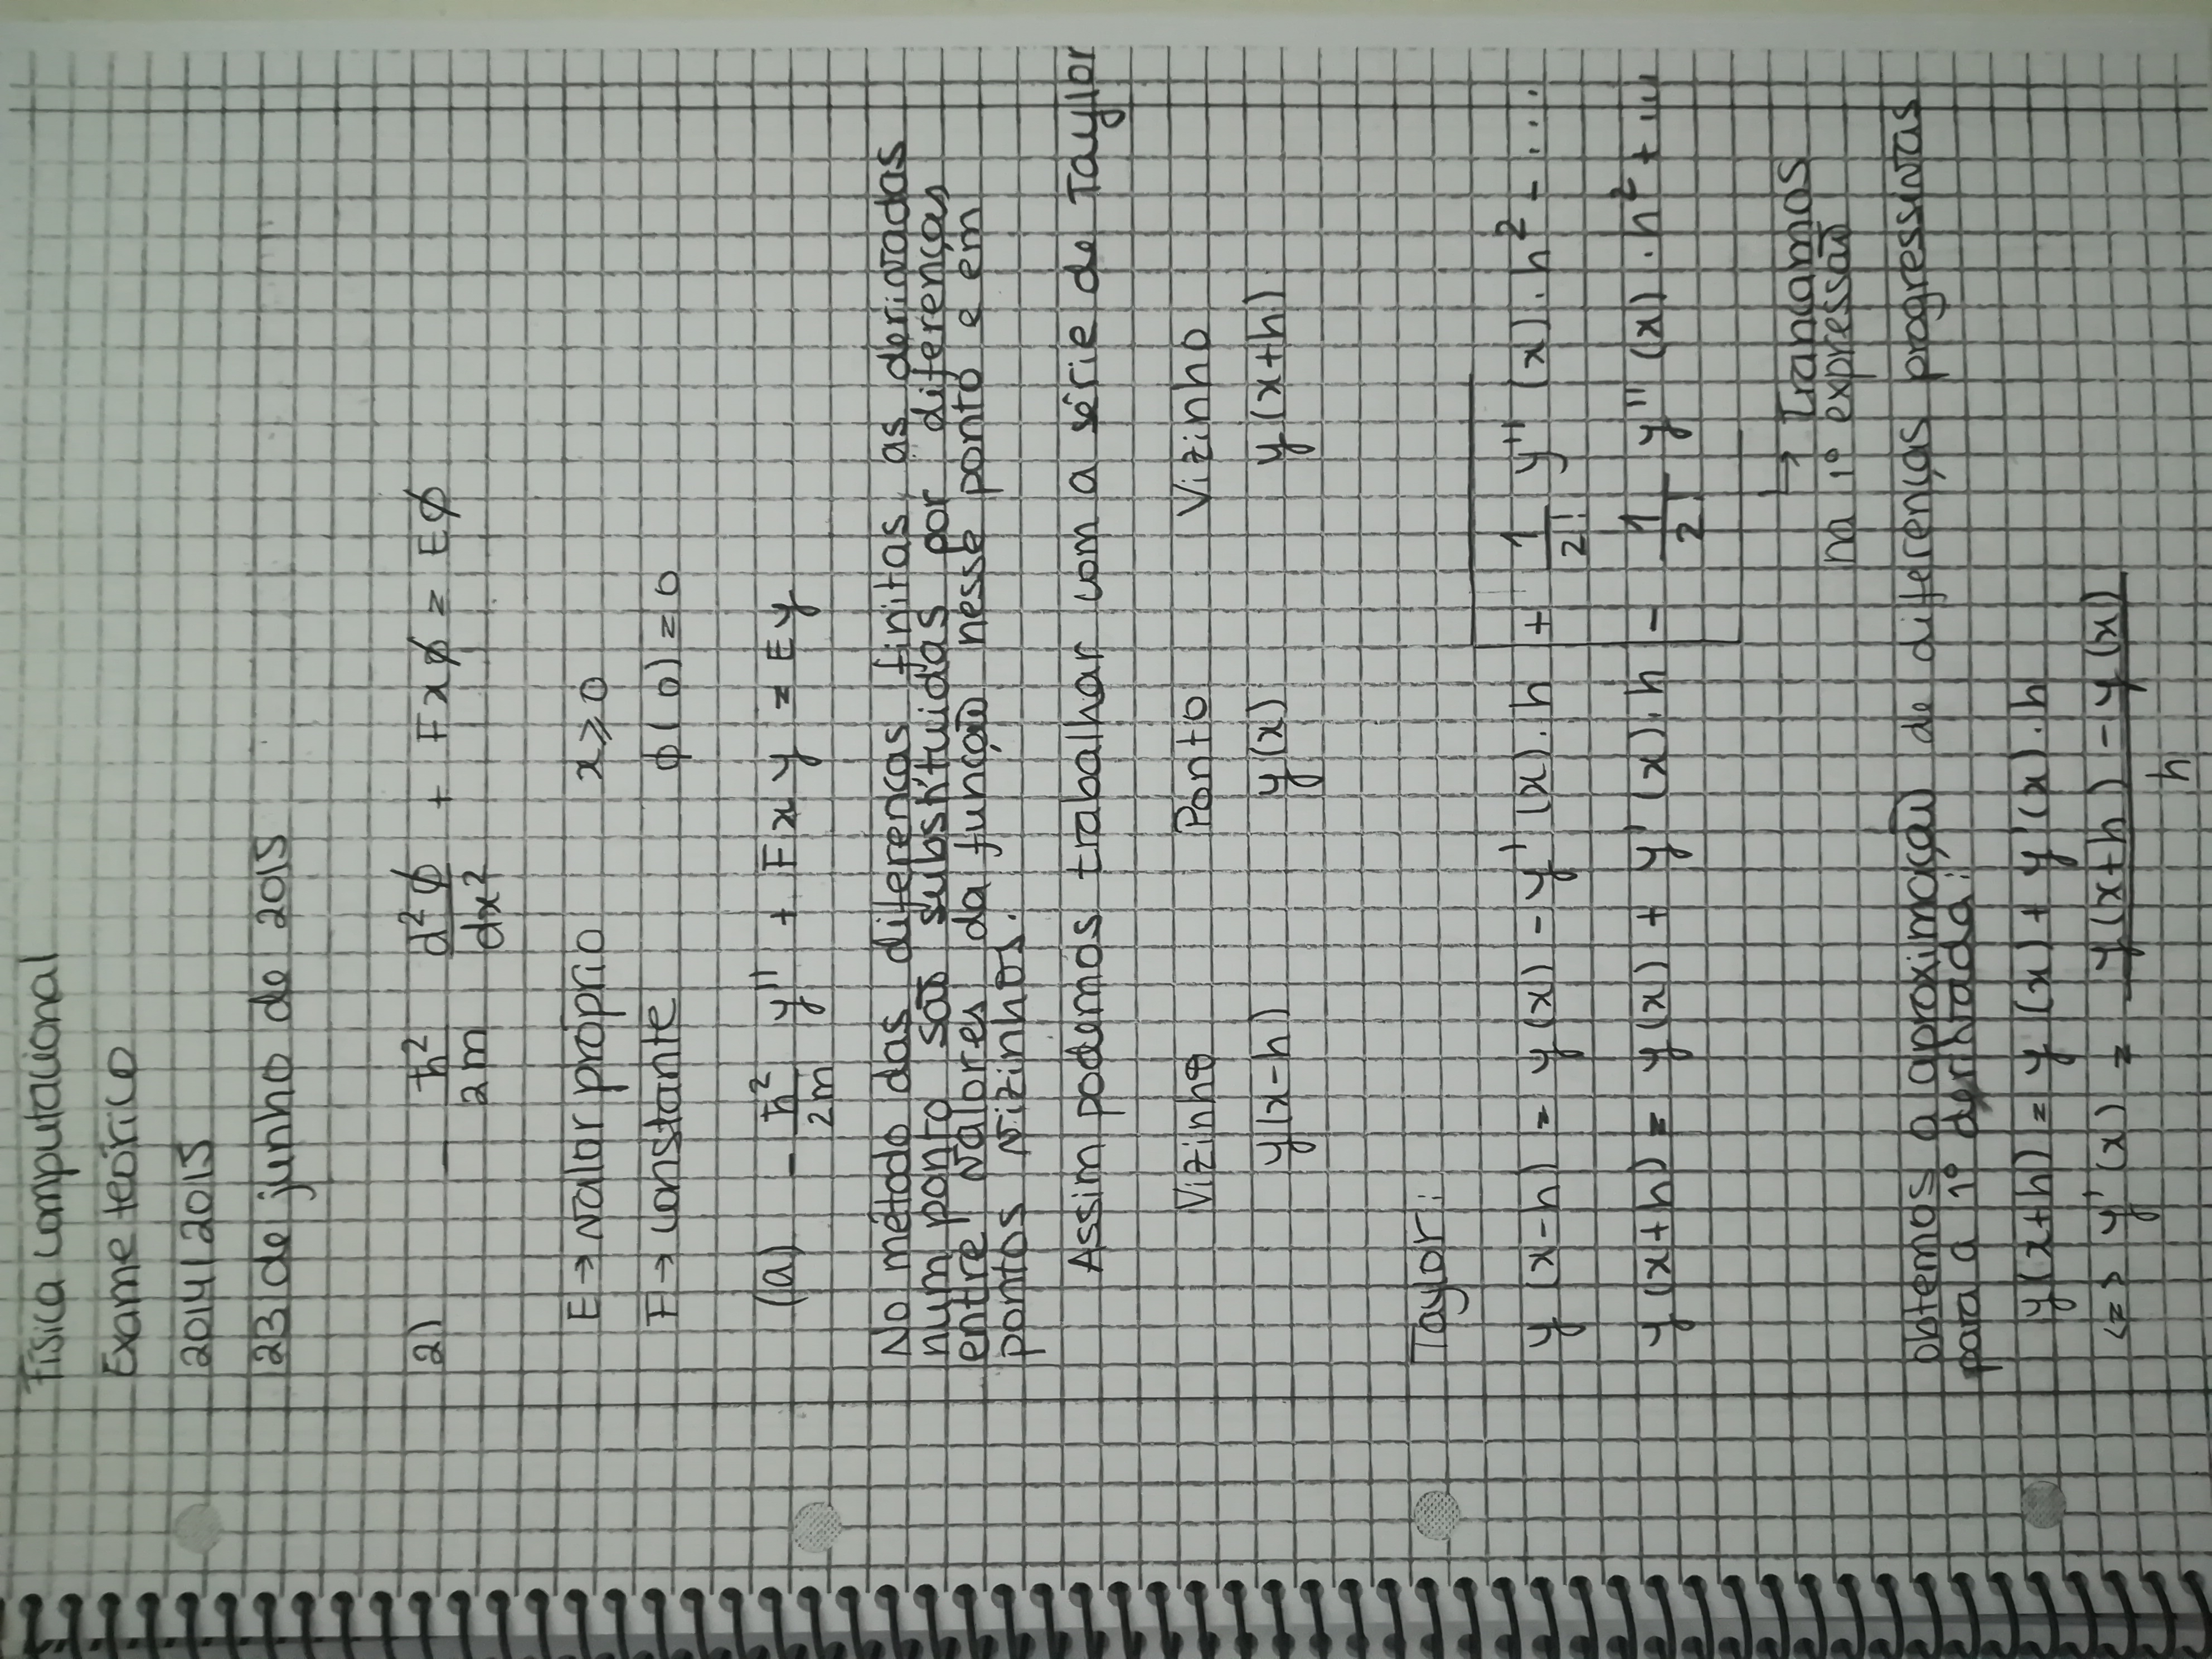 Física computacional
Exame teórico
2014/2015
23 de junho de 2015
2) - ħ²/2m d²φ/dx² + Fxφ = Eφ
E → valor próprio x ≥ 0
F → constante φ(0) = 0
(a) - ħ²/2m y'' + Fxy = Ey
No método das diferenças finitas, as derivadas
num ponto são substítuidas por diferenças
entre valores da função nesse ponto e em
pontos vizinhos.
Assim podemos trabalhar com a série de Taylor
Vizinho Ponto Vizinho
y(x-h) y(x) y(x+h)
Taylor:
y(x-h) = y(x) - y'(x).h + 1/2! y''(x).h² - ...
y(x+h) = y(x) + y'(x).h - 1/2! y''(x).h² + ...
↳ truncamos
na 1º expressão
obtemos a aproximação de diferenças progressivas
para a 1º derivada:
y(x+h) = y(x) + y'(x).h
<=> y'(x) = y(x+h) - y(x) / h